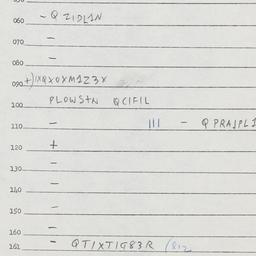 060 - Q ZIDL1N
070 -
080 -
090 +)1XQXOXM1Z3X
100 PLOWS+N QCIFIL
110 - III - Q PRAJPL1
120 +
130 -
140 -
150 -
160 -
161 - QTIXTIG83R (812